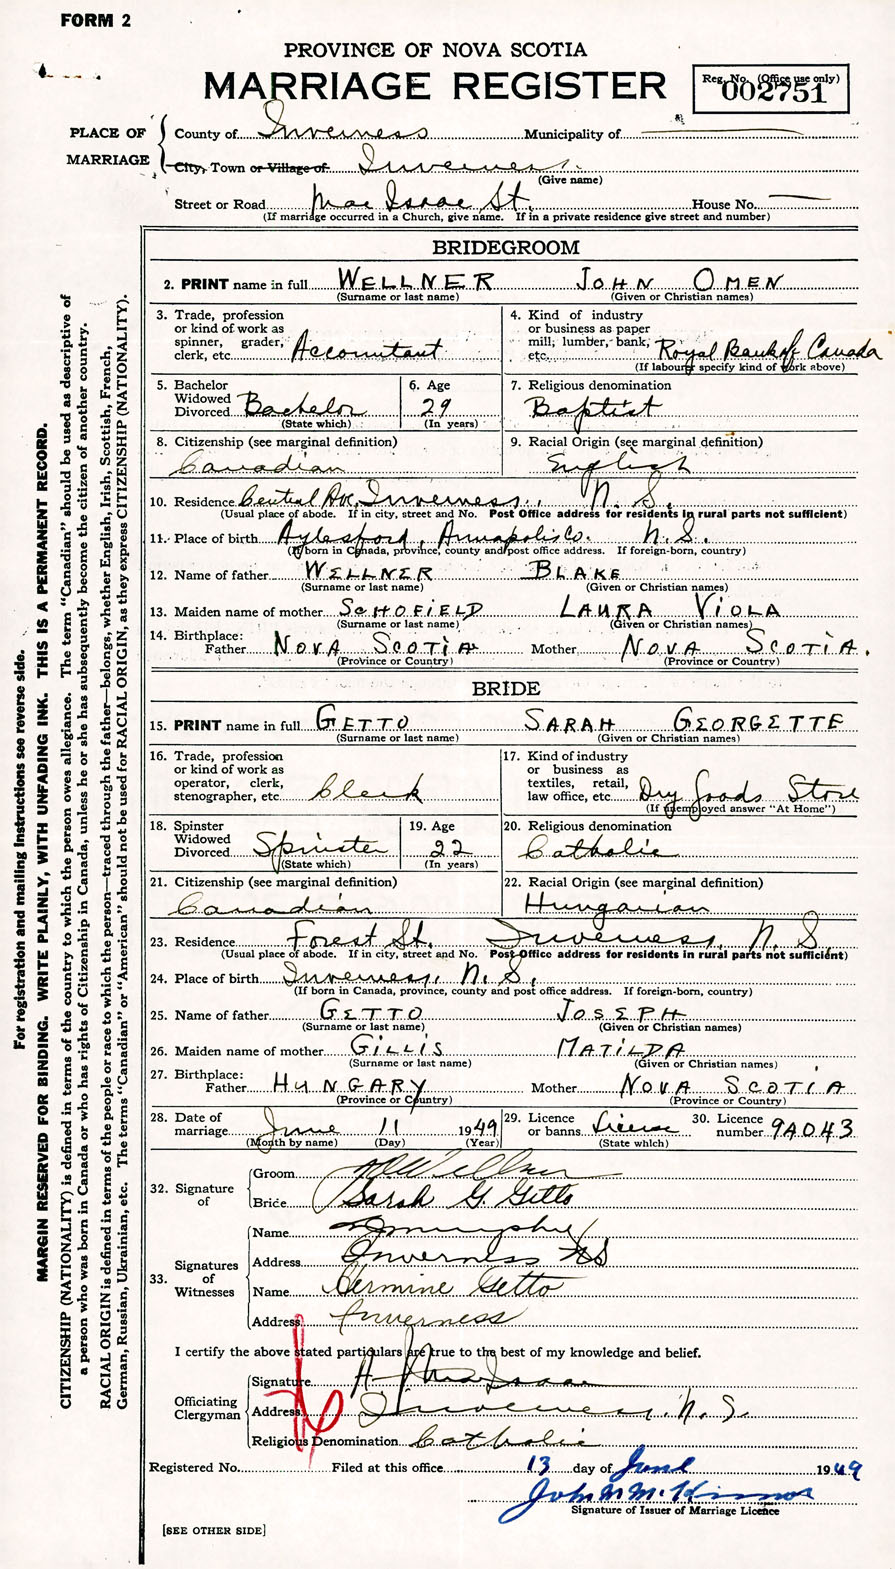 FORM 2
PROVINCE OF NOVA SCOTIA
MARRIAGE REGISTER
Reg. No. (Office use only)
002751
PLACE OF MARRIAGE
County of Inverness Municipality of
City, Town or Village of Inverness.
(Give name)
Street or Road Mac Isaac St. House No.
(If marriage occurred in a Church, give name. If in a private residence give street and number)
BRIDEGROOM
2. PRINT name in full WELLNER JOHN OMEN
(Surname or last name) (Given or Christian names)
3. Trade, profession or kind of work as spinner, grader, clerk, etc. Accountant
4. Kind of industry or business as paper mill, lumber, bank, etc. Royal Bank of Canada
(If labourer specify kind of work above)
5. Bachelor Widowed Divorced Bachelor
(State which)
6. Age 29
(In years)
7. Religious denomination
Baptist
8. Citizenship (see marginal definition)
Canadian
9. Racial Origin (see marginal definition)
English
10. Residence Central Ave, Inverness, N. S.
(Usual place of abode. If in city, street and No. Post Office address for residents in rural parts not sufficient)
11. Place of birth Aylesford, Annapolis Co. N. S.
(If born in Canada, province, county and post office address. If foreign-born, country)
12. Name of father WELLNER BLAKE
(Surname or last name) (Given or Christian names)
13. Maiden name of mother SCHOFIELD LAURA VIOLA
(Surname or last name) (Given or Christian names)
14. Birthplace:
Father NOVA SCOTIA Mother NOVA SCOTIA.
(Province or Country) (Province or Country)
BRIDE
15. PRINT name in full GETTO SARAH GEORGETTE
(Surname or last name) (Given or Christian names)
16. Trade, profession or kind of work as operator, clerk, stenographer, etc. Clerk
17. Kind of industry or business as textiles, retail, law office, etc. Dry Goods Store
(If unemployed answer "At Home")
18. Spinster Widowed Divorced Spinster
(State which)
19. Age 22
(In years)
20. Religious denomination
Catholic
21. Citizenship (see marginal definition)
Canadian
22. Racial Origin (see marginal definition)
Hungarian
23. Residence Forest St. Inverness, N. S.
(Usual place of abode. If in city, street and No. Post Office address for residents in rural parts not sufficient)
24. Place of birth Inverness, N. S.
(If born in Canada, province, county and post office address. If foreign-born, country)
25. Name of father GETTO JOSEPH
(Surname or last name) (Given or Christian names)
26. Maiden name of mother GILLIS MATILDA
(Surname or last name) (Given or Christian names)
27. Birthplace:
Father HUNGARY Mother NOVA SCOTIA
(Province or Country) (Province or Country)
28. Date of marriage June 11 1949
(Month by name) (Day) (Year)
29. Licence or banns License
(State which)
30. Licence number 9A043
32. Signature of
Groom Wellner
Bride Sarah G. Getto
33. Signatures of Witnesses
Name Murphy
Address Inverness NS
Name Hermine Getto
Address Inverness
I certify the above stated particulars are true to the best of my knowledge and belief.
Officiating Clergyman
Signature MacIsaac
Address Inverness, N. S.
Religious Denomination Catholic
Registered No. Filed at this office 13 day of June 1949
John M McKinnon
Signature of Issuer of Marriage Licence
[SEE OTHER SIDE]
For registration and mailing instructions see reverse side.
MARGIN RESERVED FOR BINDING. WRITE PLAINLY, WITH UNFADING INK. THIS IS A PERMANENT RECORD.
CITIZENSHIP (NATIONALITY) is defined in terms of the country to which the person owes allegiance. The term "Canadian" should be used as descriptive of
a person who was born in Canada or who has rights of Citizenship in Canada, unless he or she has subsequently become the citizen of another country.
RACIAL ORIGIN is defined in terms of the people or race to which the person—traced through the father—belongs, whether English, Irish, Scottish, French,
German, Russian, Ukrainian, etc. The terms "Canadian" or "American" should not be used for RACIAL ORIGIN, as they express CITIZENSHIP (NATIONALITY).